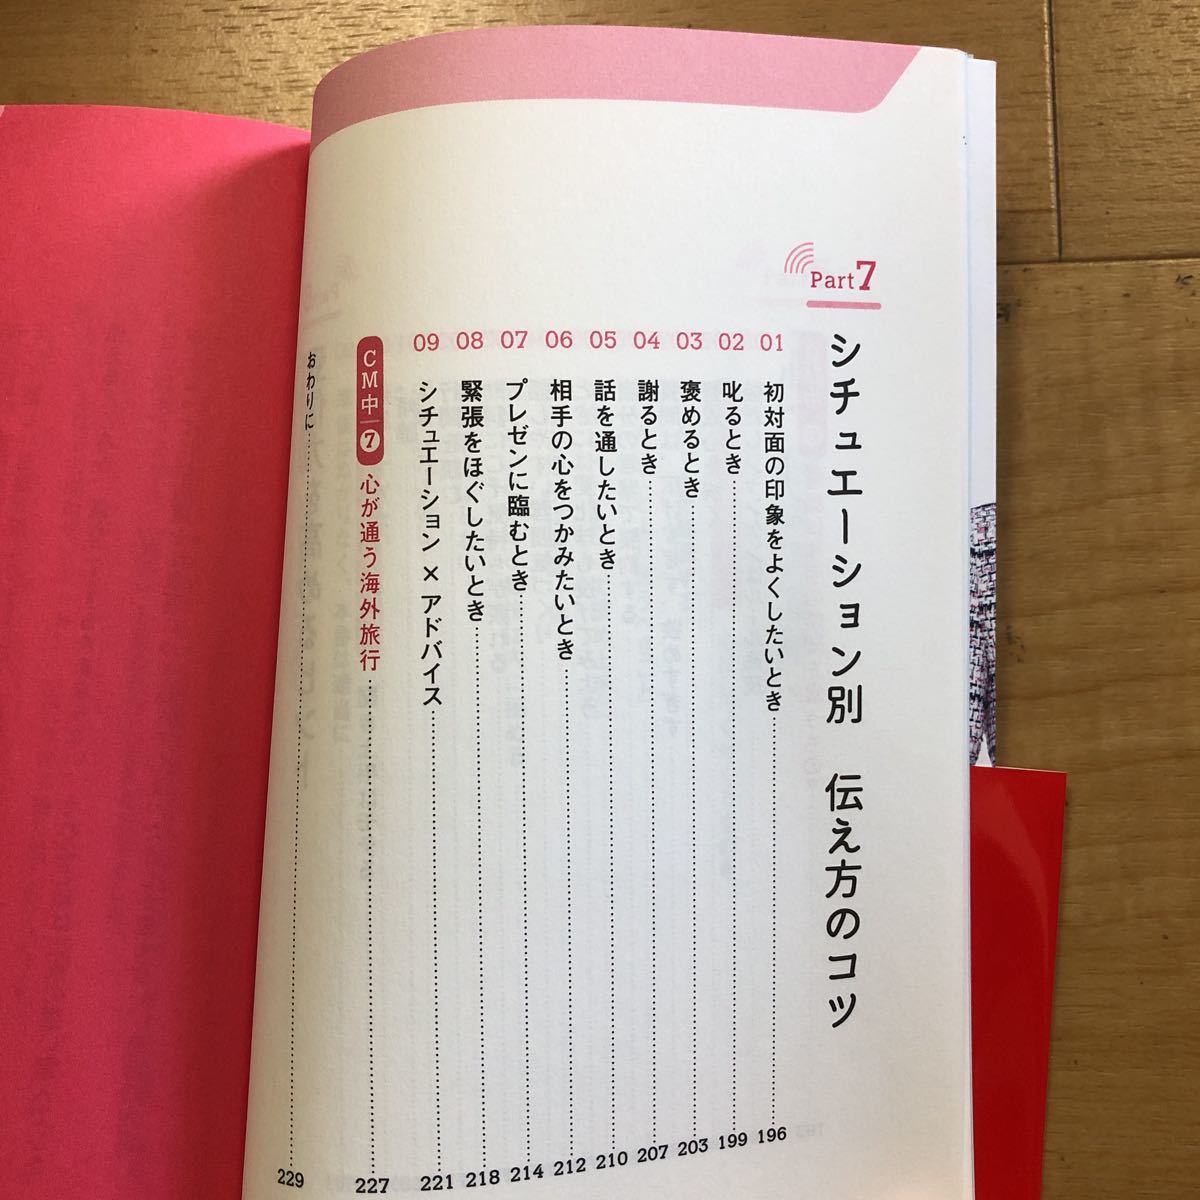 Part7
シチュエーション別　伝え方のコツ
01 初対面の印象をよくしたいとき 196
02 叱るとき 199
03 褒めるとき 203
04 謝るとき 207
05 話を通したいとき 210
06 相手の心をつかみたいとき 212
07 プレゼンに臨むとき 214
08 緊張をほぐしたいとき 218
09 シチュエーション×アドバイス 221
CM中 7 心が通う海外旅行 227
おわりに 229